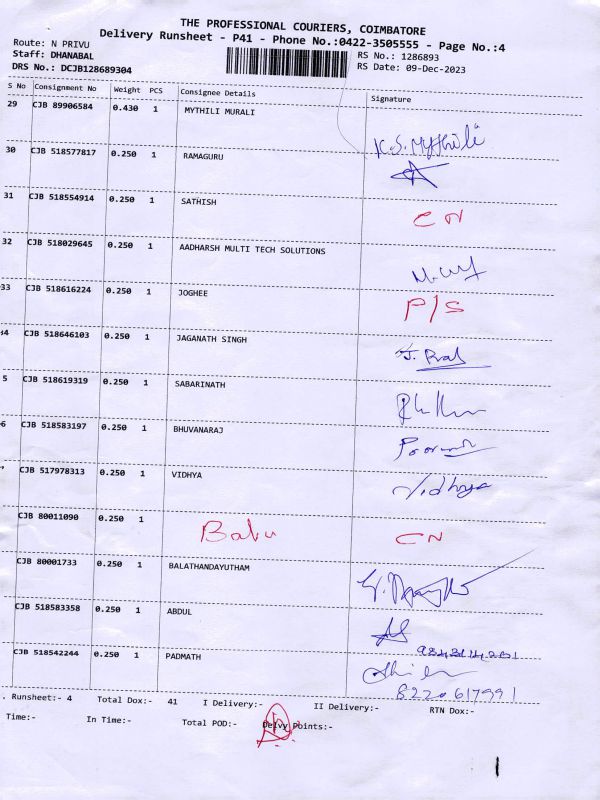 THE PROFESSIONAL COURIERS, COIMBATORE
Delivery Runsheet - P41 - Phone No.:0422-3505555 - Page No.:4
Route: N PRIVU
RS No.: 1286893
Staff: DHANABAL
RS Date: 09-Dec-2023
DRS No.: DCJB128689304
S No Consignment No Weight PCS Consignee Details Signature
29 CJB 89906584 0.430 1 MYTHILI MURALI
K.S. Mythili
30 CJB 518577817 0.250 1 RAMAGURU
31 CJB 518554914 0.250 1 SATHISH
CN
32 CJB 518029645 0.250 1 AADHARSH MULTI TECH SOLUTIONS
33 CJB 518616224 0.250 1 JOGHEE
P/S
34 CJB 518646103 0.250 1 JAGANATH SINGH
5 CJB 518619319 0.250 1 SABARINATH
6 CJB 518583197 0.250 1 BHUVANARAJ
CJB 517978313 0.250 1 VIDHYA
Vidhya
CJB 80011090 0.250 1 Babu CN
CJB 80001733 0.250 1 BALATHANDAYUTHAM
CJB 518583358 0.250 1 ABDUL
CJB 518542244 0.250 1 PADMATH
8220617991
. Runsheet:- 4 Total Dox:- 41 I Delivery:- II Delivery:- RTN Dox:-
Time:- In Time:- Total POD:- Delvy Points:-